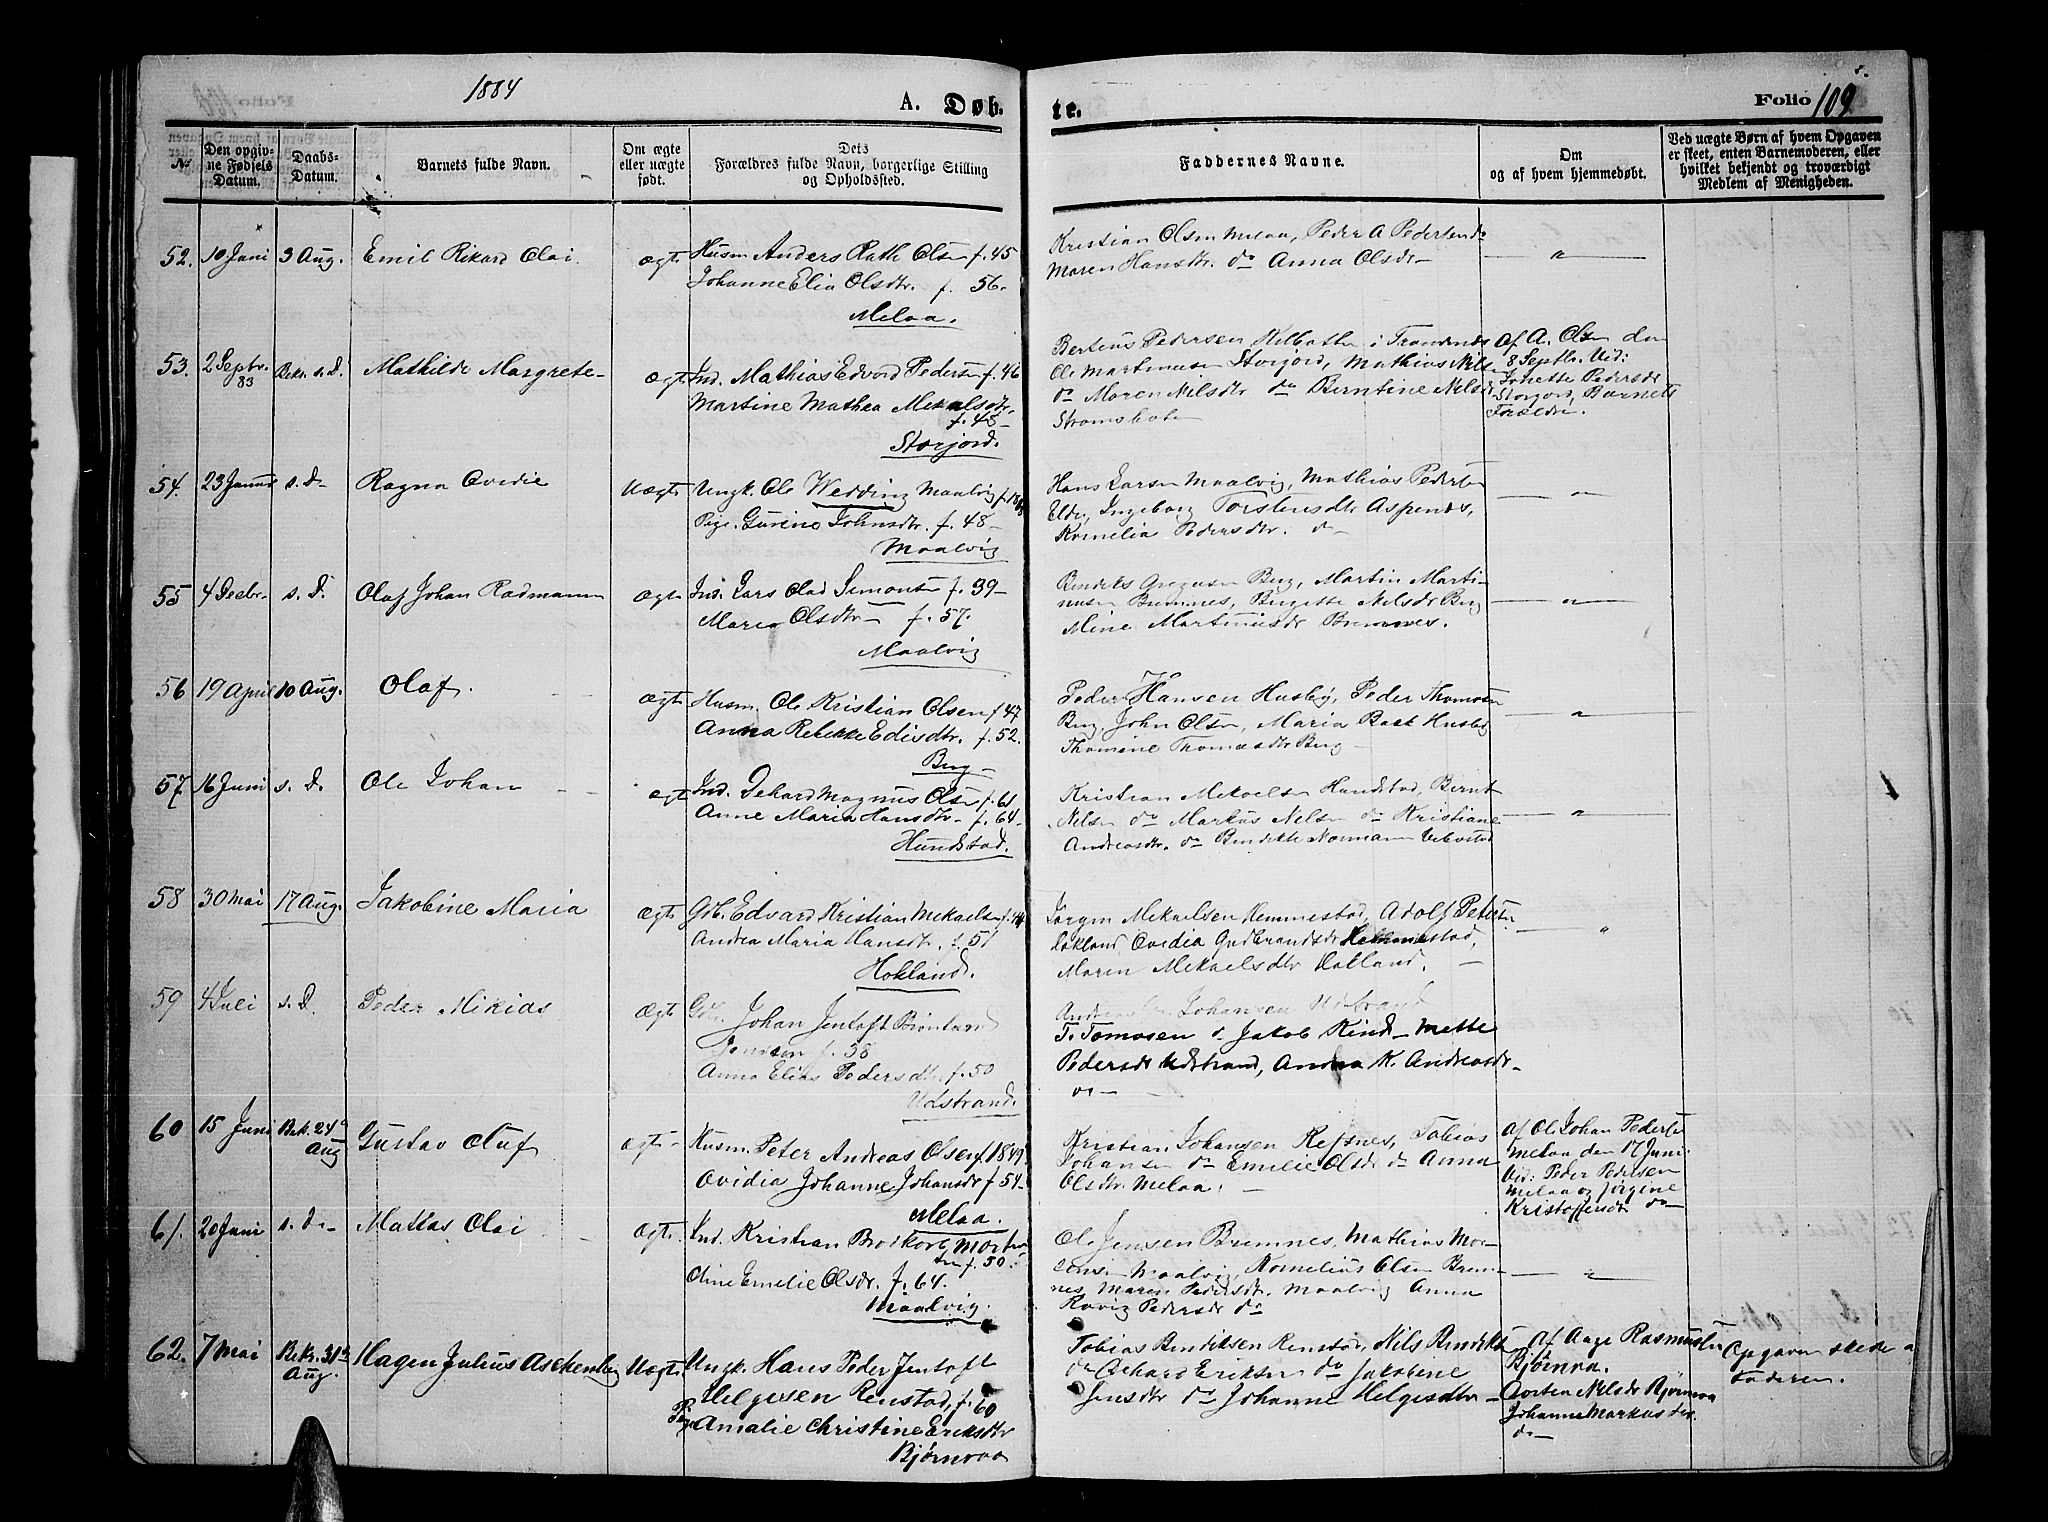 1884
A. Døb.
te.
Folio 109
No
Den opgivne Fødsels Datum.
Daabs-Datum.
Barnets fulde Navn.
Om ægte eller uægte født.
Dets Forældres fulde Navn, borgerlige Stilling og Opholdssted.
Faddernes Navne.
Om og af hvem hjemmedøbt.
Ved uægte Børn af hvem Opgaven er skeet, enten Barnemoderen, eller hvilket bekjendt og troværdigt Medlem af Menigheden.
52. 10 Juni 3 Aug. Emil Rikard Olai. ægte Husm Anders Rath Olsen f. 45
Johanne Elia Olsdtr. f. 56.
Melaa.
Kristian Olsen Melaa, Peder A Pedersen do
Maren Hansdtr. do Anna Olsdr
53. 2 Septbr. 83 Bekr. s. D. Mathilde Margrete ægte Ind. Mathias Edvard Pedersen f. 46
Martine Mathea Mekalsdtr.
f. 45
Storjord.
Berteus Pedersen Kilbotn i Trondenæs
Ole Martinusen Storjord, Mathias Nilsen
do Maren Nilsdtr do Berntine Nilsd
Stromsbotn
Af A. Olsen den
8 Septbr. Vid:
Jonette Pedersdr
Storjord, Barnets
Forældre.
54. 23 Januar s. D. Ragna Ovidie Uægte Ungk. Ole Wedding Maalvig f.
Pige. Gurine Johnsdtr. f. 48
Maalvig
Hans Larsen Maalvig, Mathias Pedersen
Elde, Ingeborg Torstensdtr Aspenes,
Kornelia Pedersdtr. do
55 4 Decbr. s. D. Olaf Johan Rodmann ægte Ind. Lars Olad Simonsen f. 39
Maria Olsdtr f. 57.
Maalvig
Bendiks Gregusen Berg, Martin Marti-
nusen Bremnes, Birgitte Nilsdr Berg
Mine Martinusdr Bremnes.
56 19 April 10 Aug. Olaf. ægte Husm. Ole Kristian Olsen f 47
Anna Rebekke Edisdtr. f. 52.
Berg
Peder Hansen Husby, Peder Thomsen
Berg, John Olsen, Maria Baek Husby
Thomine Thomasdtr Berg
57. 16 Juni s. D. Ole Johan ægte Ind. Gehard Magnus Olsen f. 61
Anne Maria Hansdtr. f. 64.
Hundstad.
Kristian Mekaelsen Hundstad, Bernt
Nilsen do Markus Nilsen do Kristiane
Andreasdtr. do Bendikte Normann
58 30 Mai 17 Aug. Jakobine Maria ægte Gdb. Edvard Kristian Mekaelsen f. 44
Andrea Maria Hansdtr. f. 51
Hokland.
Jørgen Mekaelsen Hemmestad, Adolf Petersen
Hokland Ovidia Gudbrandsdr Hemmestad,
Maren Mekaelsdtr Hokland.
59 4 Juli s. D. Peder Mikias ægte Gdb. Johan Jentoft Brøntund
Jensen f. 58
Anna Elias Pedersdtr. f. 50
Udstrand.
Andreas Johansen Udstrand
T. Tomasen do Jakob Kind Mette
Pedersdr Udstrand, Andrea K. Andreasdr
do
60 15 Juni Bek. 24de Aug Gustav Oluf ægte Husm. Peter Andreas Olsen f. 1849.
Ovidia Johanne Johansdr f 54
Melaa.
Kristian Johansen Refsnes, Tobias
Johansen do Emilie Olsdr do Anna
Olsdtr. Melaa.
Af Ole Johan Pedersen
Melaa den 17 Juni.
Vid: Peder Pedersen
Melaa og Jørgine
Kristoffersdr do
61. 20 Juni s. d. Matias Olai ægte Ind. Kristian Brodkorb Morten
sen f. 50.
Oline Emelie Olsdr. f. 64.
Maalvig.
Ol. Jensen Bremnes, Mathias Mor-
tensen Maalvig, Kornelius Olsen Brem-
nes, Maren Pedersdtr. Maalvig Anna
Ravig Pedersdr do
62. 7 Mai Bekr. 31te Aug. Hagen Julius Aschenberg Uægte Ungk. Hans Peder Jentoft
Helgesen Renstad, f. 60
Pige Amalie Christine Eriksdtr
Bjørnraa
Tobias Bendiksen Renstad, Nils Bendiktsen
do Gehard Eriksen do Jakobine
Jensdtr do Johanne Helgesdtr
Af Aage Rasmussen
Bjørnraa.
Aorten Nilsdr Bjørnraa
Johanne Markusdtr.
do
Opgaven skede af
Faderen.